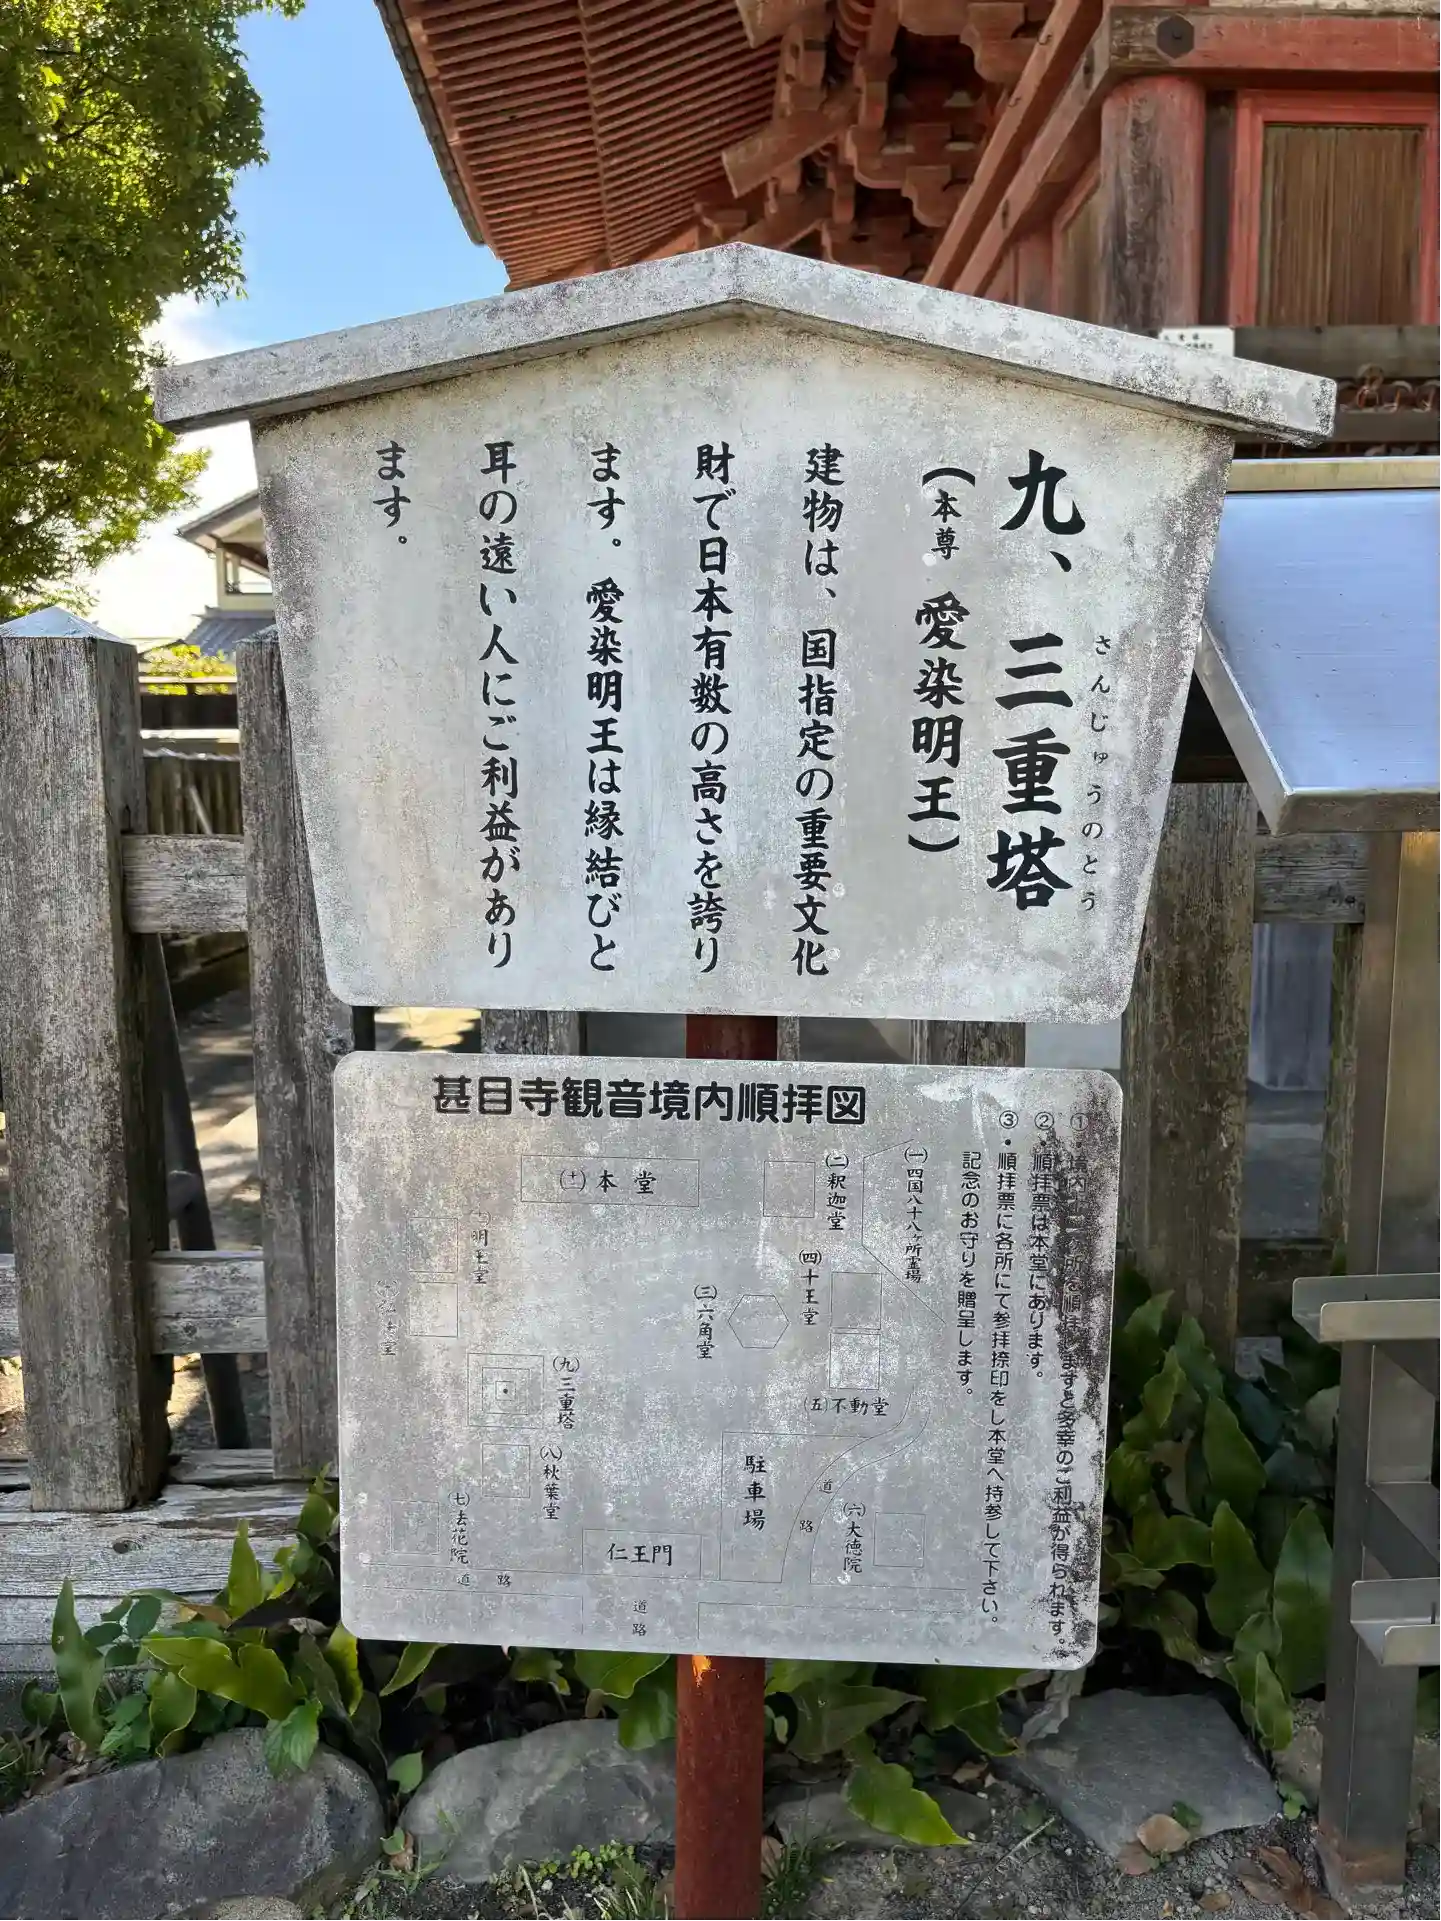 九、三重塔
さんじゅうのとう
(本尊 愛染明王)
建物は、国指定の重要文化
財で日本有数の高さを誇り
ます。愛染明王は縁結びと
耳の遠い人にご利益があり
ます。
甚目寺観音境内順拝図
①・境内十二ヶ所を順拝しますと多幸のご利益が得られます。
②・順拝票は本堂にあります。
③・順拝票に各所にて参拝捺印をし本堂へ持参して下さい。
記念のお守りを贈呈します。
(一)四国八十八ヶ所霊場
(二)釈迦堂
(四)十王堂
(三)六角堂
(五)不動堂
(六)大徳院
本堂
明王堂
(九)三重塔
(八)秋葉堂
(七)法花院
仁王門
駐車場
道路
道路
道路